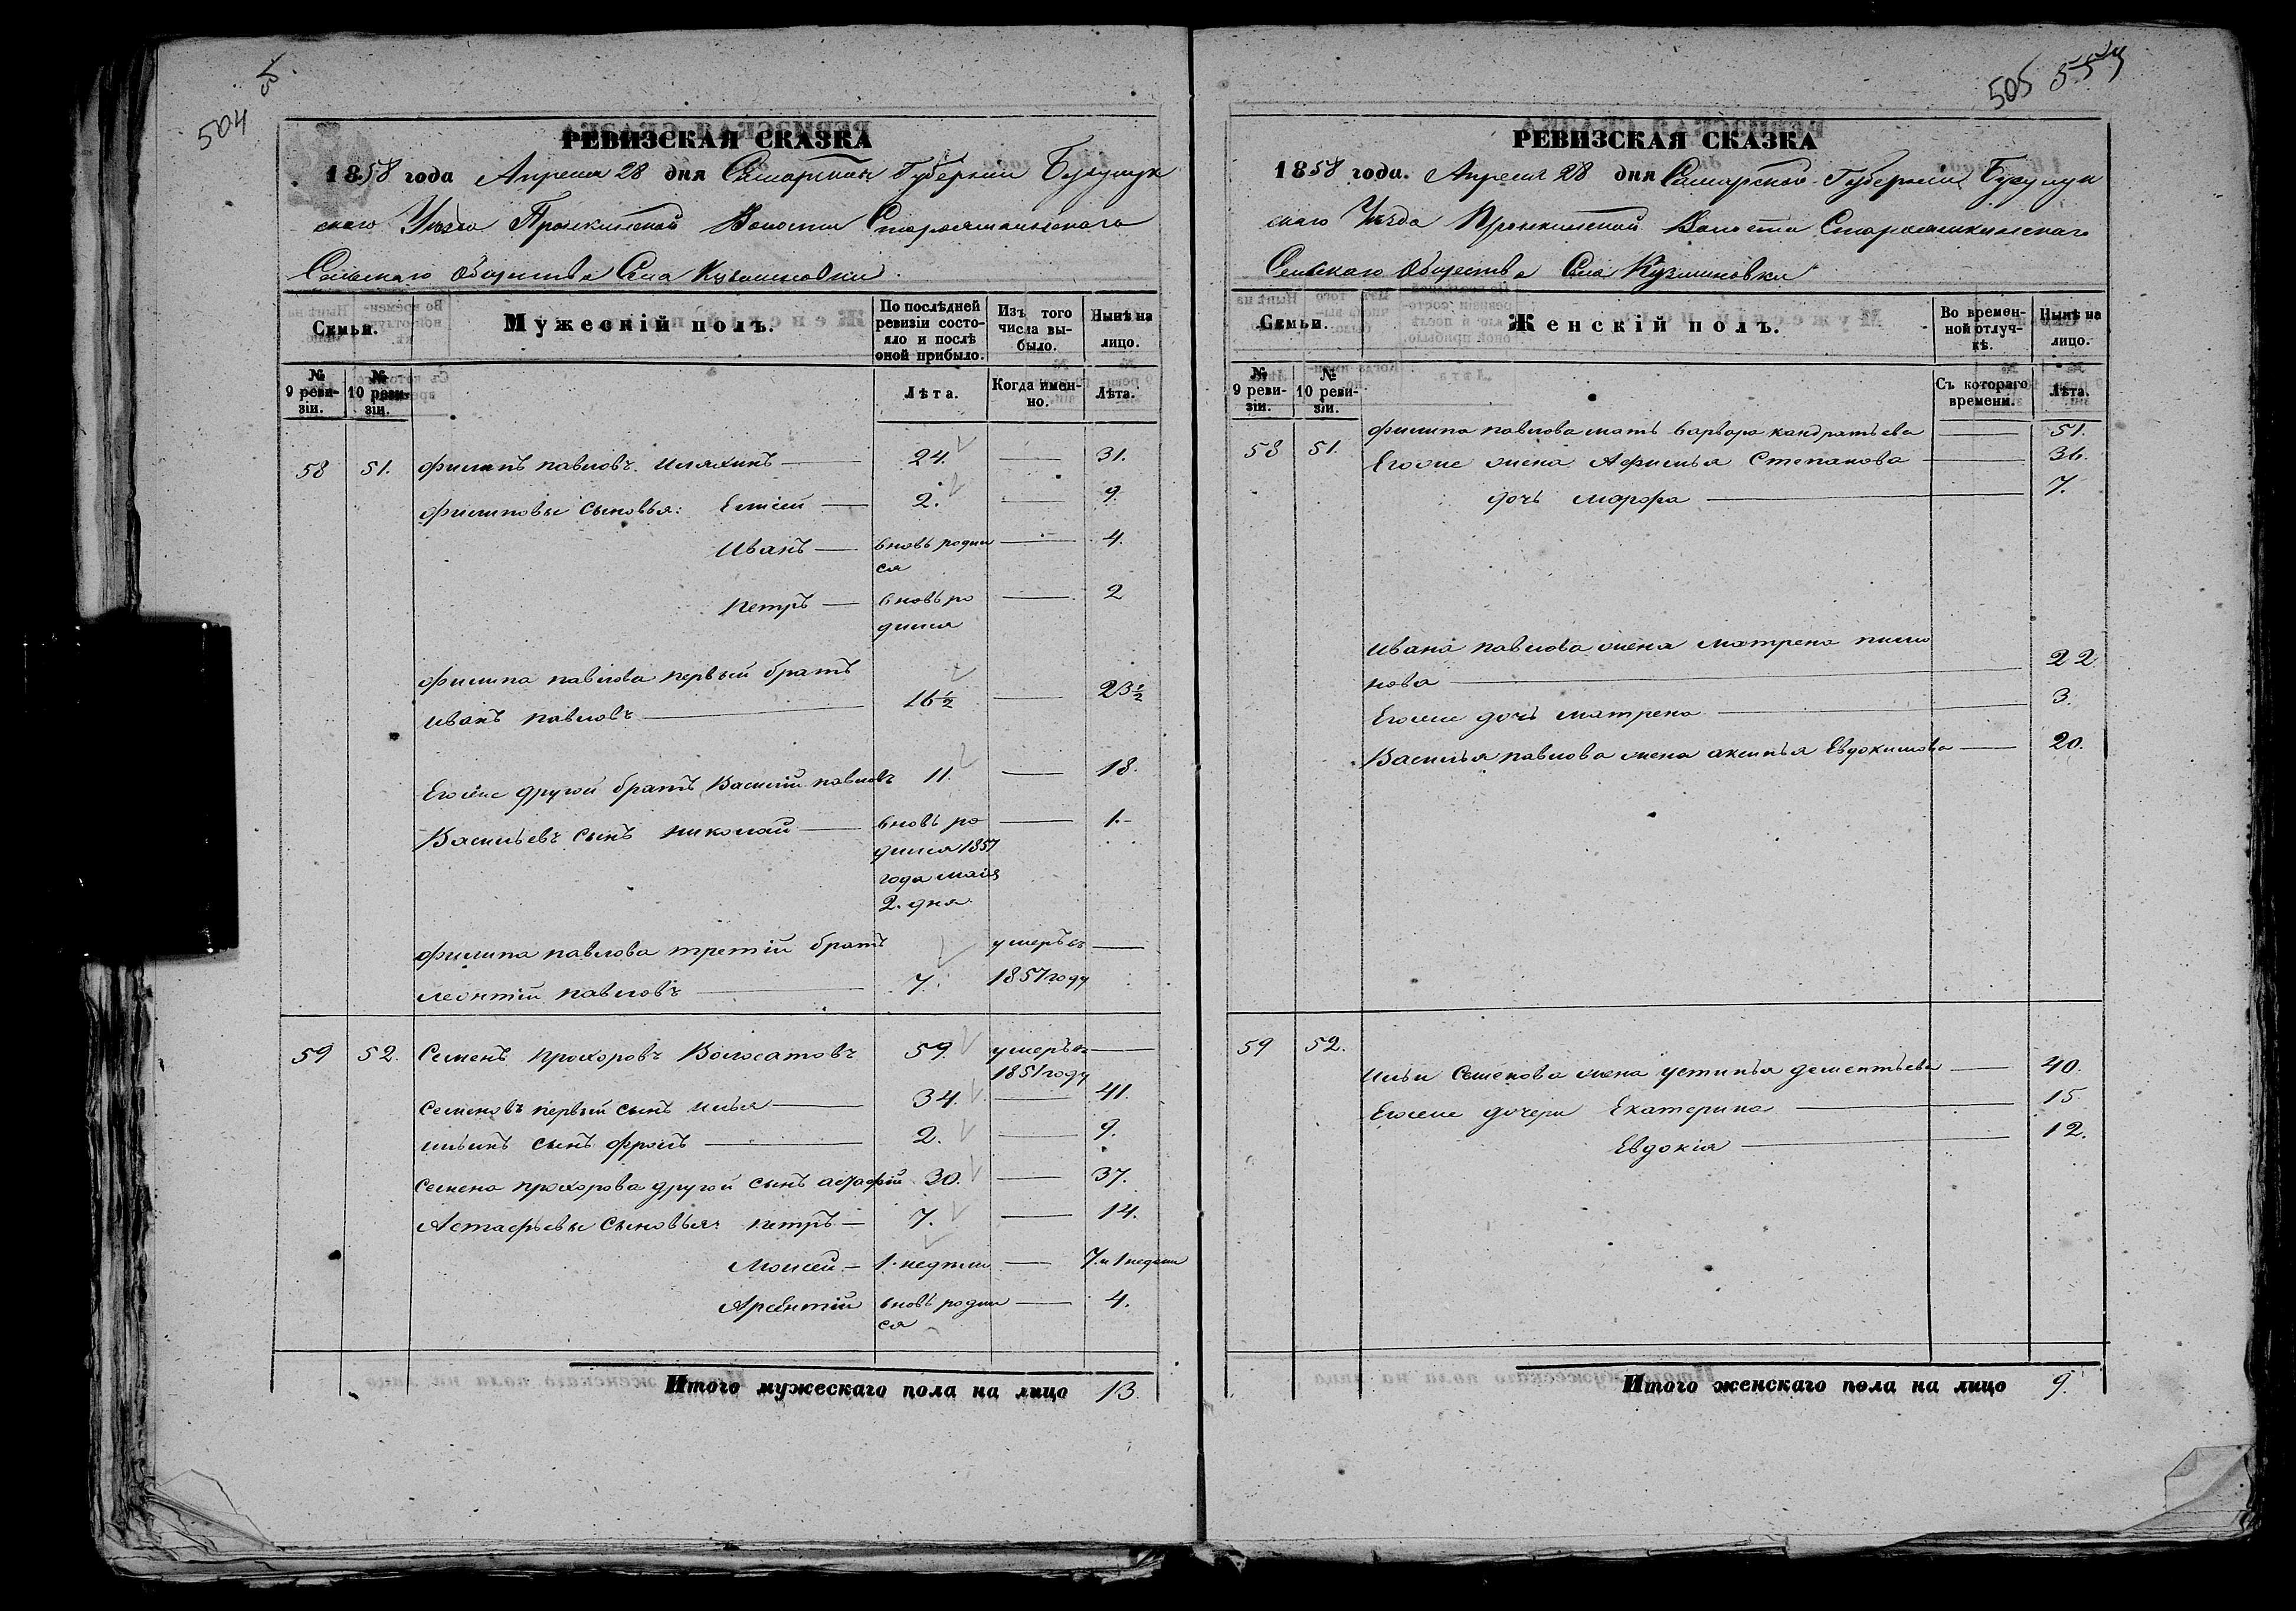 504
505
РЕВИЗСКАЯ СКАЗКА
1858 года Апреля 28 дня Самарской Губернии Бузулук
скаго Уезда Пронкинской Волости
Сельскаго Общества Села Кузминовки
Семьи.
Мужескій полъ.
По послѣдней ревизіи состояло и послѣ оной прибыло.
Изъ того числа выбыло.
Нынѣ на лицо.
№ 9 ревизіи.
№ 10 ревизіи.
Лѣта.
Когда именно.
Лѣта.
58 51. Филипъ павловъ 24. 31.
Филиповы сыновья: Елисей 2. 9.
Иванъ вновь родил 4.
ся
Петръ вновь ро 2
дился
Филипа павлова первый братъ
Иванъ павловъ 16½ 23½
Егоже другой братъ Василий павловъ 11. 18.
Васильевъ сынъ Николай вновь ро 1.
дился 1857
года маія
2. дня
Филипа павлова третій братъ умеръ въ
Леонтій павловъ 7. 1857 году
59 52. Семенъ Прохоровъ Волосатовъ 59. умеръ въ
1851 году
Семеновъ первый сынъ Илья 34. 41.
Ильинъ сынъ Фролъ 2. 9.
Семена прохорова другой сынъ 30. 37.
Астафьевы сыновья: Петръ 7. 14.
Моисей 1. недели 7. и 1 недели
вновь родил 4.
ся
Итого мужескаго пола на лицо 13.
РЕВИЗСКАЯ СКАЗКА
1858 года. Апреля 28 дня Самарской Губернии Бузулук
скаго Уезда Пронкинской Волости
Сельскаго Общества Села Кузминовки
Семьи.
Женскій полъ.
Во временной отлучкѣ.
Нынѣ на лицо.
№ 9 ревизіи.
№ 10 ревизіи.
Съ котораго времени.
Лѣта.
58 51. Филипа павлова мать варвара кандратьева 51.
Егоже жена Афимья Степанова 36.
дочь марфа 7.
Ивана павлова жена матрена
нова 22
Егоже дочь матрена 3.
Василья павлова жена аксинья Евдокимова 20.
59 52.
Ильи Семенова жена устинья дементьева 40.
Егоже дочери Екатерина 15
Евдокія 12.
Итого женскаго пола на лицо 9.